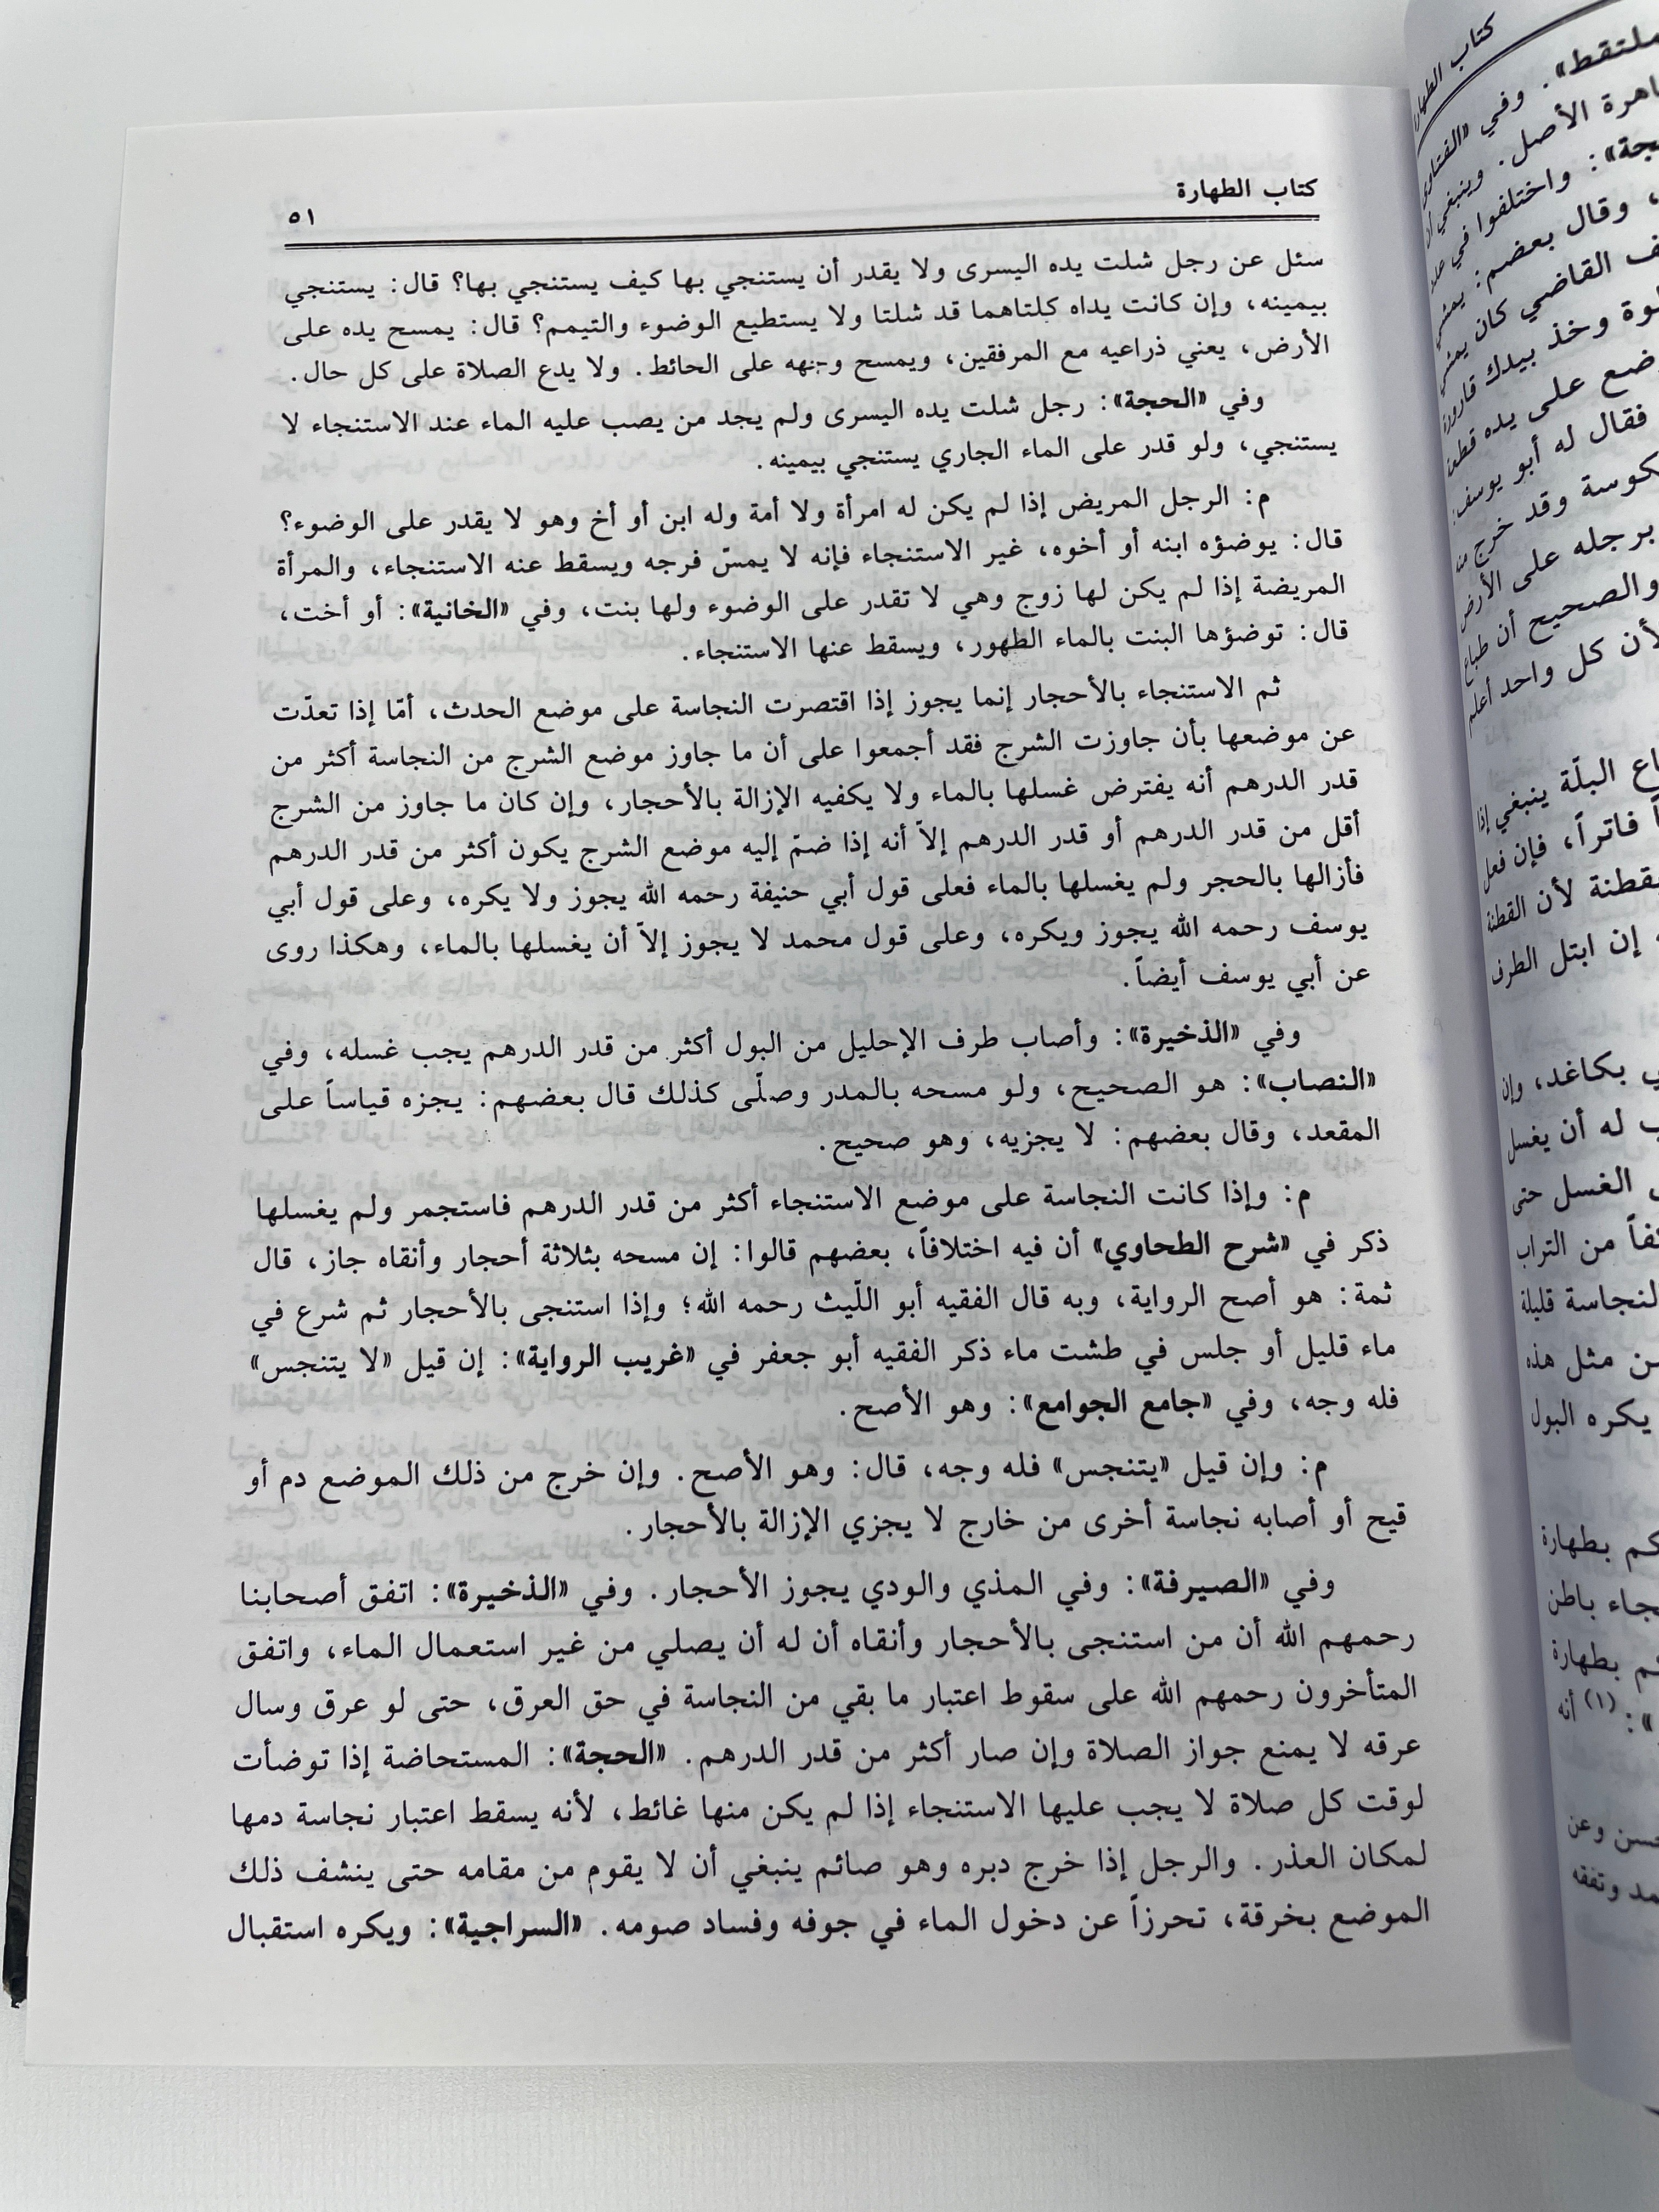 كتاب الطهارة ٥١
سئل عن رجل شلت يده اليسرى ولا يقدر أن يستنجي بها كيف يستنجي بها؟ قال: يستنجي
بيمينه، وإن كانت يداه كلتاهما قد شلتا ولا يستطيع الوضوء والتيمم؟ قال: يمسح يده على
الأرض، يعني ذراعيه مع المرفقين، ويمسح وجهه على الحائط. ولا يدع الصلاة على كل حال.
وفي «الحجة»: رجل شلت يده اليسرى ولم يجد من يصب عليه الماء عند الاستنجاء لا
يستنجي، ولو قدر على الماء الجاري يستنجي بيمينه.
م: الرجل المريض إذا لم يكن له امرأة ولا أمة وله ابن أو أخ وهو لا يقدر على الوضوء؟
قال: يوضؤه ابنه أو أخوه، غير الاستنجاء فإنه لا يمسّ فرجه ويسقط عنه الاستنجاء، والمرأة
المريضة إذا لم يكن لها زوج وهي لا تقدر على الوضوء ولها بنت، وفي «الخانية»: أو أخت،
قال: توضؤها البنت بالماء الطهور، ويسقط عنها الاستنجاء.
ثم الاستنجاء بالأحجار إنما يجوز إذا اقتصرت النجاسة على موضع الحدث، أمّا إذا تعدّت
عن موضعها بأن جاوزت الشرج فقد أجمعوا على أن ما جاوز موضع الشرج من النجاسة أكثر من
قدر الدرهم أنه يفترض غسلها بالماء ولا يكفيه الإزالة بالأحجار، وإن كان ما جاوز من الشرج
أقل من قدر الدرهم أو قدر الدرهم إلاّ أنه إذا ضمّ إليه موضع الشرج يكون أكثر من قدر الدرهم
فأزالها بالحجر ولم يغسلها بالماء فعلى قول أبي حنيفة رحمه الله يجوز ولا يكره، وعلى قول أبي
يوسف رحمه الله يجوز ويكره، وعلى قول محمد لا يجوز إلاّ أن يغسلها بالماء، وهكذا روى
عن أبي يوسف أيضاً.
وفي «الذخيرة»: وأصاب طرف الإحليل من البول أكثر من قدر الدرهم يجب غسله، وفي
«النصاب»: هو الصحيح، ولو مسحه بالمدر وصلّى كذلك قال بعضهم: يجزه قياساً على
المقعد، وقال بعضهم: لا يجزيه، وهو صحيح.
م: وإذا كانت النجاسة على موضع الاستنجاء أكثر من قدر الدرهم فاستجمر ولم يغسلها
ذكر في «شرح الطحاوي» أن فيه اختلافاً، بعضهم قالوا: إن مسحه بثلاثة أحجار وأنقاه جاز، قال
ثمة: هو أصح الرواية، وبه قال الفقيه أبو اللّيث رحمه الله؛ وإذا استنجى بالأحجار ثم شرع في
ماء قليل أو جلس في طشت ماء ذكر الفقيه أبو جعفر في «غريب الرواية»: إن قيل «لا يتنجس»
فله وجه، وفي «جامع الجوامع»: وهو الأصح.
م: وإن قيل «يتنجس» فله وجه، قال: وهو الأصح. وإن خرج من ذلك الموضع دم أو
قيح أو أصابه نجاسة أخرى من خارج لا يجزي الإزالة بالأحجار.
وفي «الصيرفة»: وفي المذي والودي يجوز الأحجار. وفي «الذخيرة»: اتفق أصحابنا
رحمهم الله أن من استنجى بالأحجار وأنقاه أن له أن يصلي من غير استعمال الماء، واتفق
المتأخرون رحمهم الله على سقوط اعتبار ما بقي من النجاسة في حق العرق، حتى لو عرق وسال
عرقه لا يمنع جواز الصلاة وإن صار أكثر من قدر الدرهم. «الحجة»: المستحاضة إذا توضأت
لوقت كل صلاة لا يجب عليها الاستنجاء إذا لم يكن منها غائط، لأنه يسقط اعتبار نجاسة دمها
لمكان العذر. والرجل إذا خرج دبره وهو صائم ينبغي أن لا يقوم من مقامه حتى ينشف ذلك
الموضع بخرقة، تحرزاً عن دخول الماء في جوفه وفساد صومه. «السراجية»: ويكره استقبال
كتاب الطهارة
ملتقط». وفي «الفتاوى
الأصل. وينبغي
واختلفوا في
وقال بعضهم: يمشي
القاضي كان يمشي
وخذ بيدك قارورة
على يده قطعة
فقال له أبو يوسف:
وقد خرج من
برجله على الأرض
والصحيح أن طباع
لأن كل واحد أعلم
البلّة ينبغي إذا
فاتراً، فإن فعل
بقطنة لأن القطنة
إن ابتل الطرف
بكاغد، وإن
له أن يغسل
الغسل حتى
من التراب
النجاسة قليلة
من مثل هذه
يكره البول
بطهارة
باطن
بطهارة
(١) أنه
وعن
وتفقه